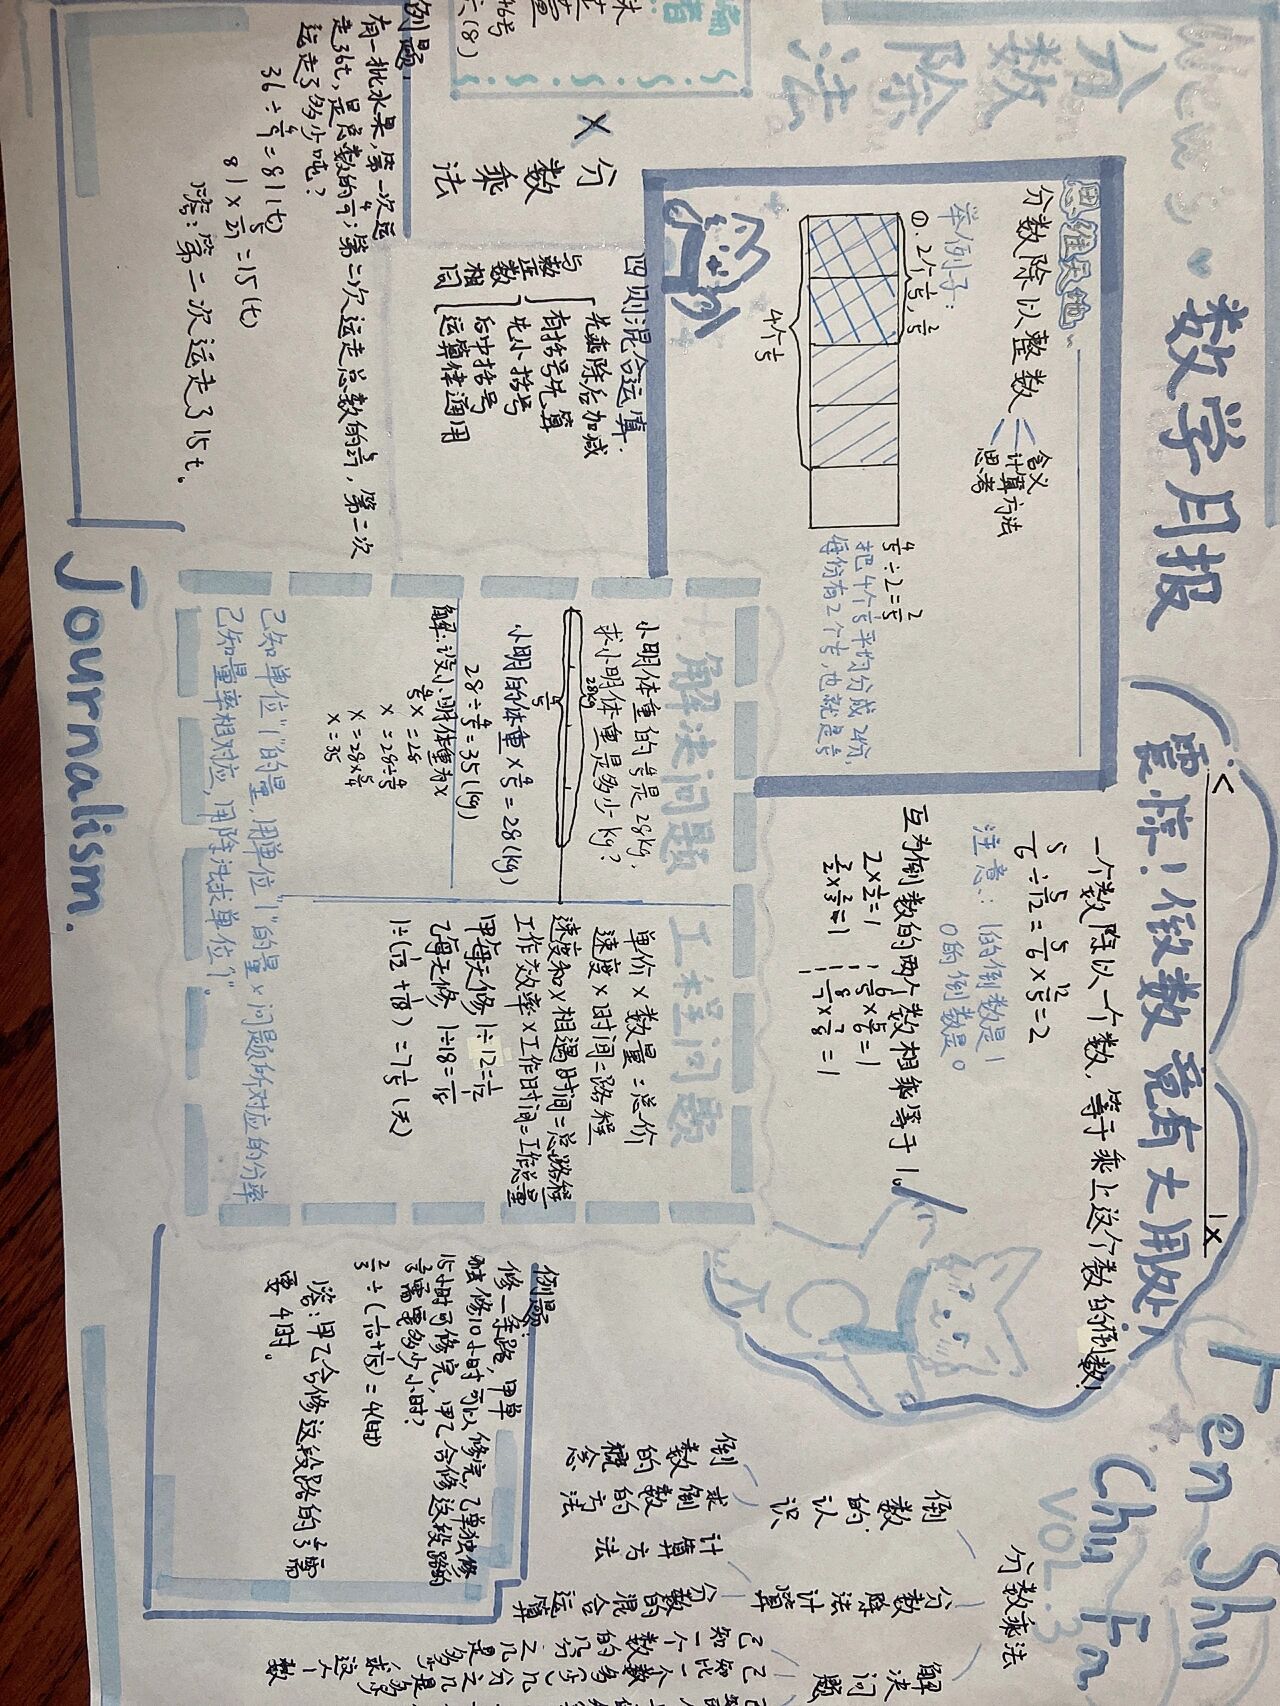 News
数学月报
Fen Shu
Chu Fa
VOL.3
分数
除法
六(8)
46号
思维天地
分数除以整数
含义
计算方法
思考
举例子:
①. 2个1/5, 2/5
4个1/5
4/5÷2=2/5
把4个1/5平均分成2份,
每份有2个1/5,也就是2/5
震惊!倒数竟有大用处!
一个数除以一个数,等于乘上这个数的倒数!
5/6÷5/12=5/6×12/5=2
注意:1的倒数是1
0的倒数是0
互为倒数的两个数相乘等于1。
2×1/2=1
6/5×5/6=1
3/2×2/3=1
8/7×7/8=1
×
分数乘法
四则混合运算:
与整数相同
先乘除后加减
有括号先算
先小括号
后中括号
运算律通用
例题:
有一批水果,第一次运
走36t,是总数的4/9;第二次运走总数的5/27,第二次
运走了多少吨?
36÷4/9=81(t)
81×5/27=15(t)
答:第二次运走了15t。
解决问题
小明体重的4/5是28kg,
求小明体重是多少kg?
28kg
4/5
小明的体重×4/5=28(kg)
28÷4/5=35(kg)
解:设小明体重为x
4/5x=28
x=28÷4/5
x=28×5/4
x=35
工程问题
单价×数量=总价
速度×时间=路程
速度和×相遇时间=总路程
工作效率×工作时间=工作总量
甲每天修 1÷12=1/12
乙每天修 1÷18=1/18
1÷(1/12+1/18)=7 1/5(天)
已知单位"1"的量,用单位"1"的量×问题所对应的分率
已知量率相对应,用除法求单位"1"。
例题:
修一条路,甲单
独修10小时可以修完,乙单独修
15小时可修完,甲乙合修这段路的
2/3需要多少小时?
2/3÷(1/10+1/15)=4(时)
答:甲乙合修这段路的2/3需
要4时。
分数乘法
倒数的认识
倒数的概念
求倒数的方法
分数除法计算
计算方法
分数的混合运算
解决问题
Journalism.